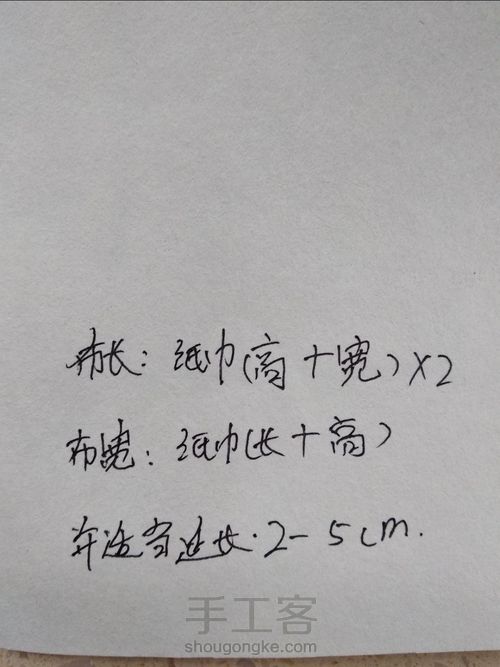 布长：纸巾(高+宽)×2
布宽：纸巾(长+高)
并适当延长·2-5cm.
手工客
shougongke.com